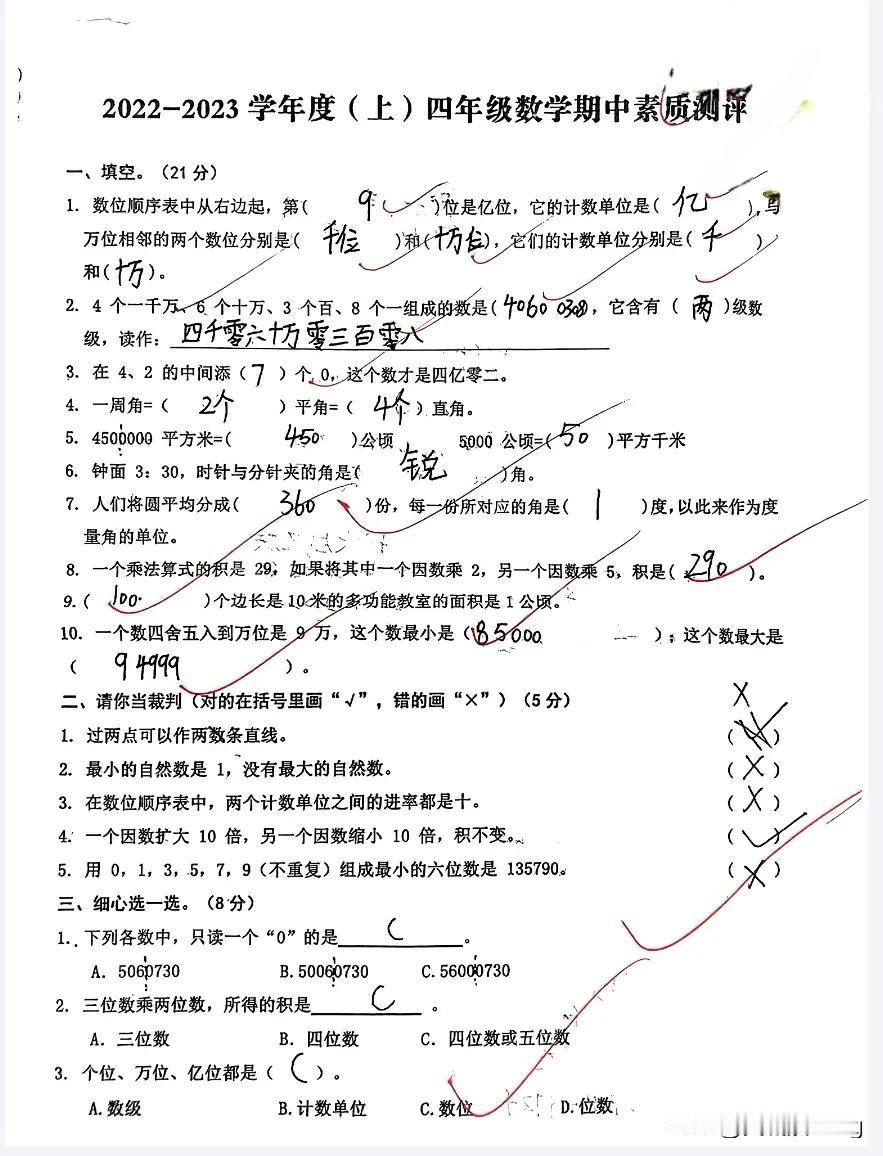 2022-2023 学年度（上）四年级数学期中素质测评
一、填空。（21 分）
1. 数位顺序表中从右边起，第( 9 )位是亿位，它的计数单位是( 亿 ),与
万位相邻的两个数位分别是( 千位 )和(十万位)，它们的计数单位分别是( 千 )
和(十万)。
2. 4 个一千万、6 个十万、3 个百、8 个一组成的数是(4060 0308)，它含有（ 两 )级数
级，读作：四千零六十万零三百零八
3. 在 4、2 的中间添（7 ）个 0，这个数才是四亿零二。
4. 一周角=（ 2个 ）平角=（ 4个 ）直角。
5. 4500000 平方米=( 450 )公顷 5000 公顷=( 50 )平方千米
6. 钟面 3：30，时针与分针夹的角是( 锐 )角。
7. 人们将圆平均分成( 360 )份，每一份所对应的角是( 1 )度，以此来作为度
量角的单位。
8. 一个乘法算式的积是 29，如果将其中一个因数乘 2，另一个因数乘 5，积是( 290 )。
9.( 100 )个边长是 10 米的多功能教室的面积是 1 公顷。
10. 一个数四舍五入到万位是 9 万，这个数最小是（85000 ）；这个数最大是
（ 94999 ）。
二、请你当裁判（对的在括号里画“√”，错的画“×”）（5 分）
×
1. 过两点可以作两数条直线。 ( )
2. 最小的自然数是 1，没有最大的自然数。 (×)
3. 在数位顺序表中，两个计数单位之间的进率都是十。 (×)
4. 一个因数扩大 10 倍，另一个因数缩小 10 倍，积不变。 (√)
5. 用 0，1，3，5，7，9（不重复）组成最小的六位数是 135790。 (×)
三、细心选一选。（8 分）
1. 下列各数中，只读一个“0”的是 C 。
A. 5060730 B. 50060730 C. 56000730
2. 三位数乘两位数，所得的积是 C 。
A. 三位数 B. 四位数 C. 四位数或五位数
3. 个位、万位、亿位都是（ C ）。
A. 数级 B. 计数单位 C. 数位 D. 位数